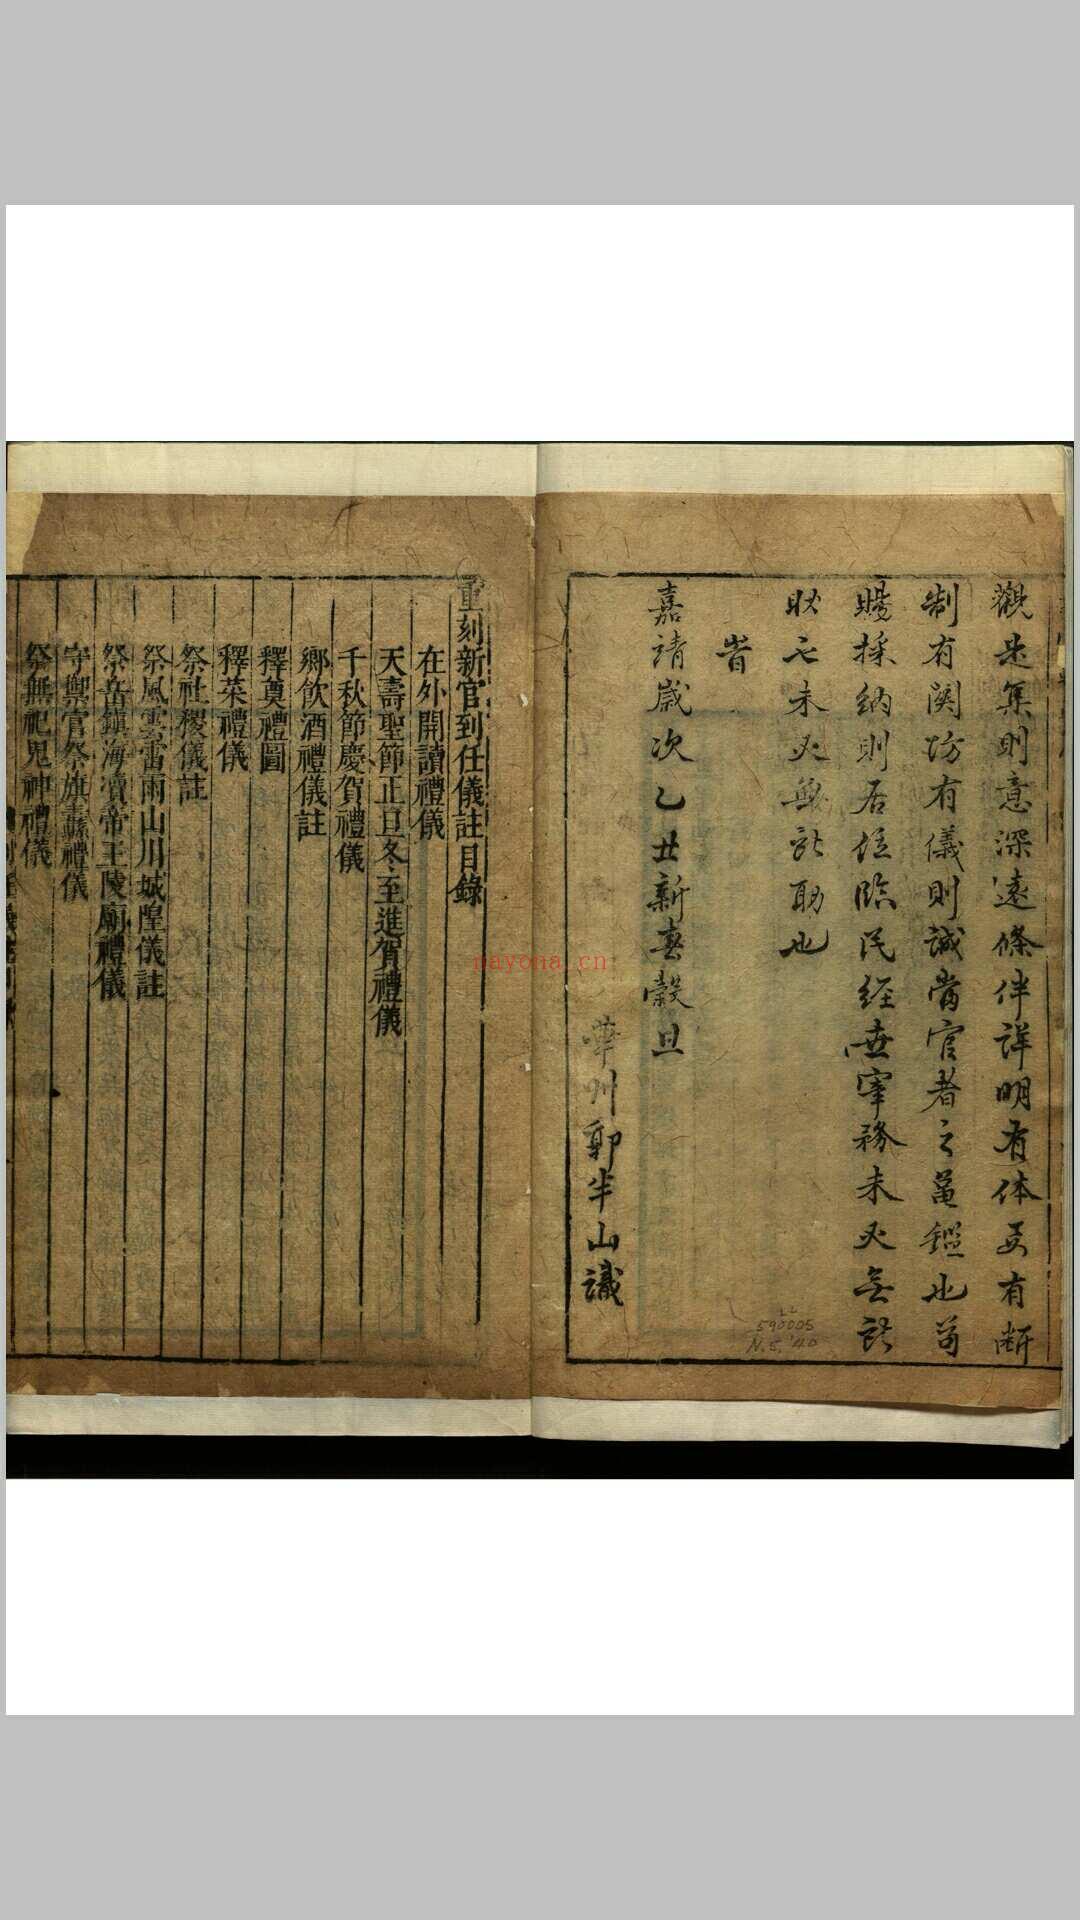 觀是集則意深遠條件詳明有体要有斷
制有関坊有儀則誠當官者之龜鑑也苟
賜採納則居位臨民經世宰務未必無訢
旹
嘉靖歲次乙丑新春穀旦
華州郭半山識
590005
N. 5, '40
重刻新官到任儀註目錄
在外開讀禮儀
天壽聖節正旦冬至進賀禮儀
千秋節慶賀禮儀
鄉飲酒禮儀註
釋奠禮圖
釋菜禮儀
祭社稷儀註
祭風雲雷雨山川城隍儀註
祭岳鎮海瀆帝王陵廟禮儀
守禦官祭旗纛禮儀
祭無祀鬼神禮儀
nayona.cn